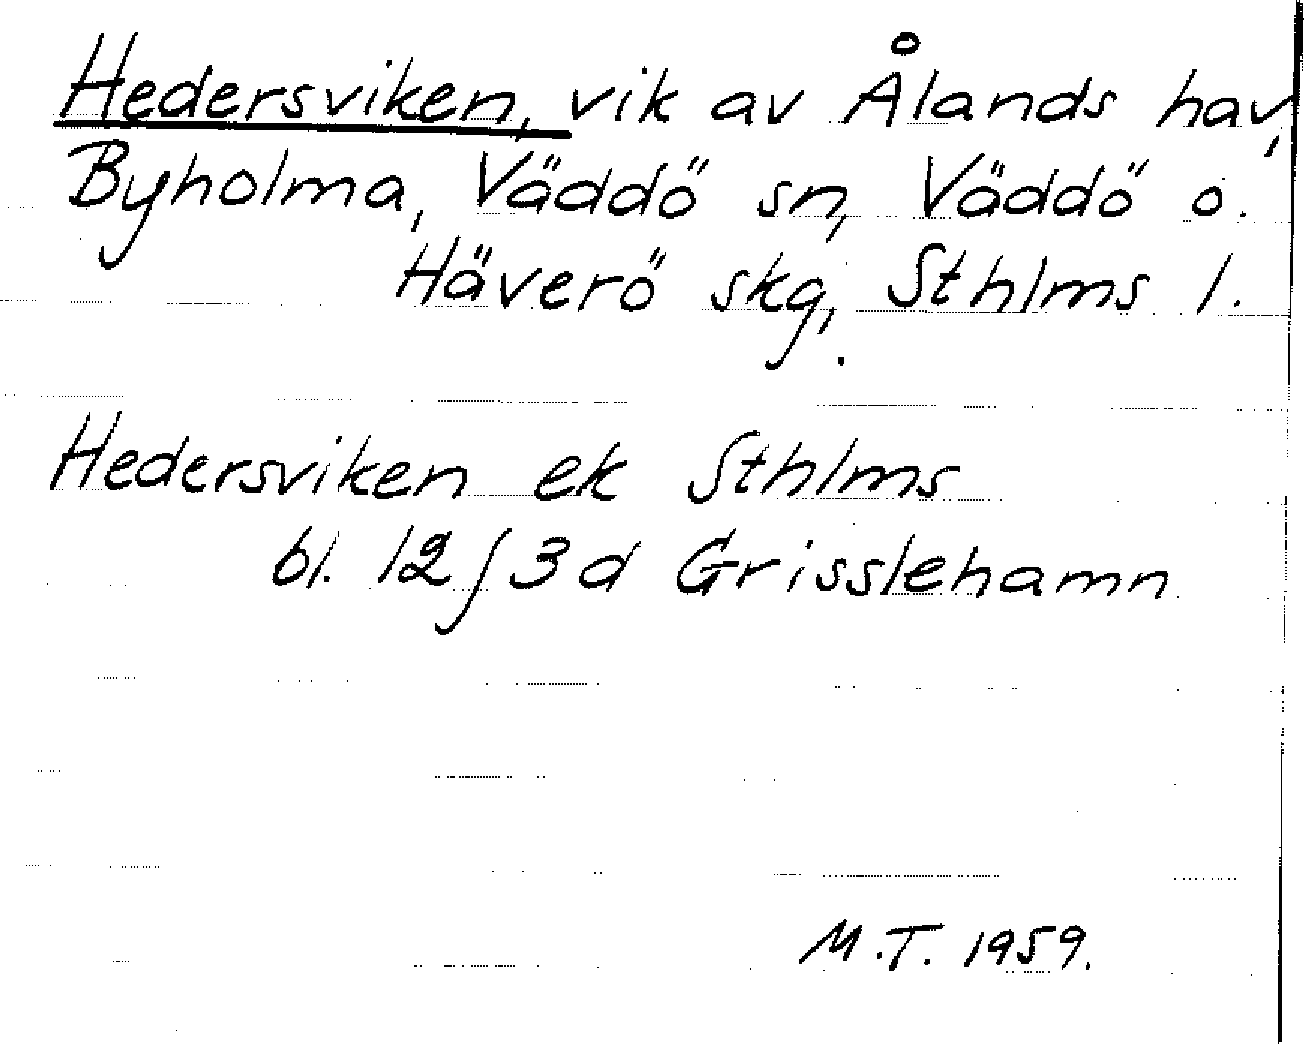 Hedersviken, vik av Ålands hav,
Byholma, Väddö sn, Väddö o.
Häverö skg, Sthlms l.
Hedersviken ek Sthlms
bl. 12 J 3 d Grisslehamn
M.T. 1959.